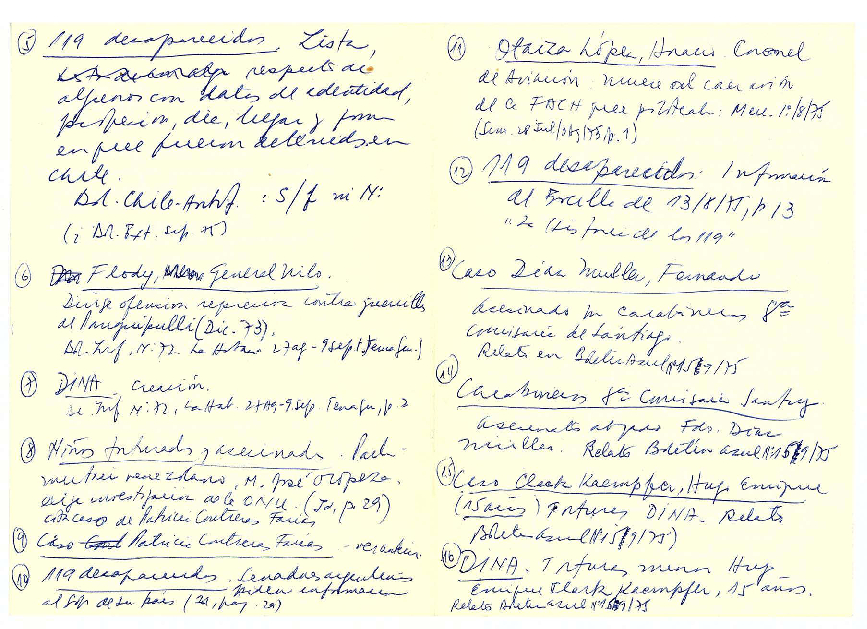 5 119 desaparecidos. Lista,
respecto de
algunos con datos de identidad,
profesión, día, lugar y forma
en que fueron detenidos en
Chile.
Bol. Chile-Antif. : S/f ni Nº
(¿ Bol. Ext. Sep 75)
6 Flody, General Nilo.
Dirige ofensiva represiva contra guerrillas
de Panguipulli (Dic. 73).
Bol. Inf. Nº 72. La Habana 27 ag - 9 sept
7 DINA creación.
Inf Nº 72, La Hab. 27 Ag - 9 Sep. p. 2
8 Niños torturados y asesinados.
venezolano, M. José Oropeza
exige investigación de la ONU. (Id, p 29)
cita caso de Patricio Contreras Farías
9 Caso Patricio Contreras Farías
10 119 desaparecidos. Senadores argentinos
piden información
al Gob de su país (Id, pág. 29)
11 Otaiza López, Horacio. Coronel
de Aviación. muere al caer avión
de la FACH que piloteaba: Merc. 1º/8/75
(Sem. 28 Jul/ 75/p. 1)
12 119 desaparecidos. Información
de 13/8/75, p 13
"La historia de los 119"
13 Caso Díaz Muller, Fernando
Asesinado por carabineros 8va
Comisaría de Santiago.
Relato en Boletín Azul Nº 15 9/75
14 Carabineros 8ª Comisaría Santiago.
Asesinato Fdo. Díaz
Muller. Relato Boletín azul Nº 15 9/75
15 Caso Clark Kaempfer, Hugo Enrique
(15 años) Torturas DINA. Relato
Boletín azul Nº 15 9/75)
16 DINA. Torturas menor Hugo
Enrique Clark Kaempfer, 15 años.
Relato Boletín azul Nº 15 9/75